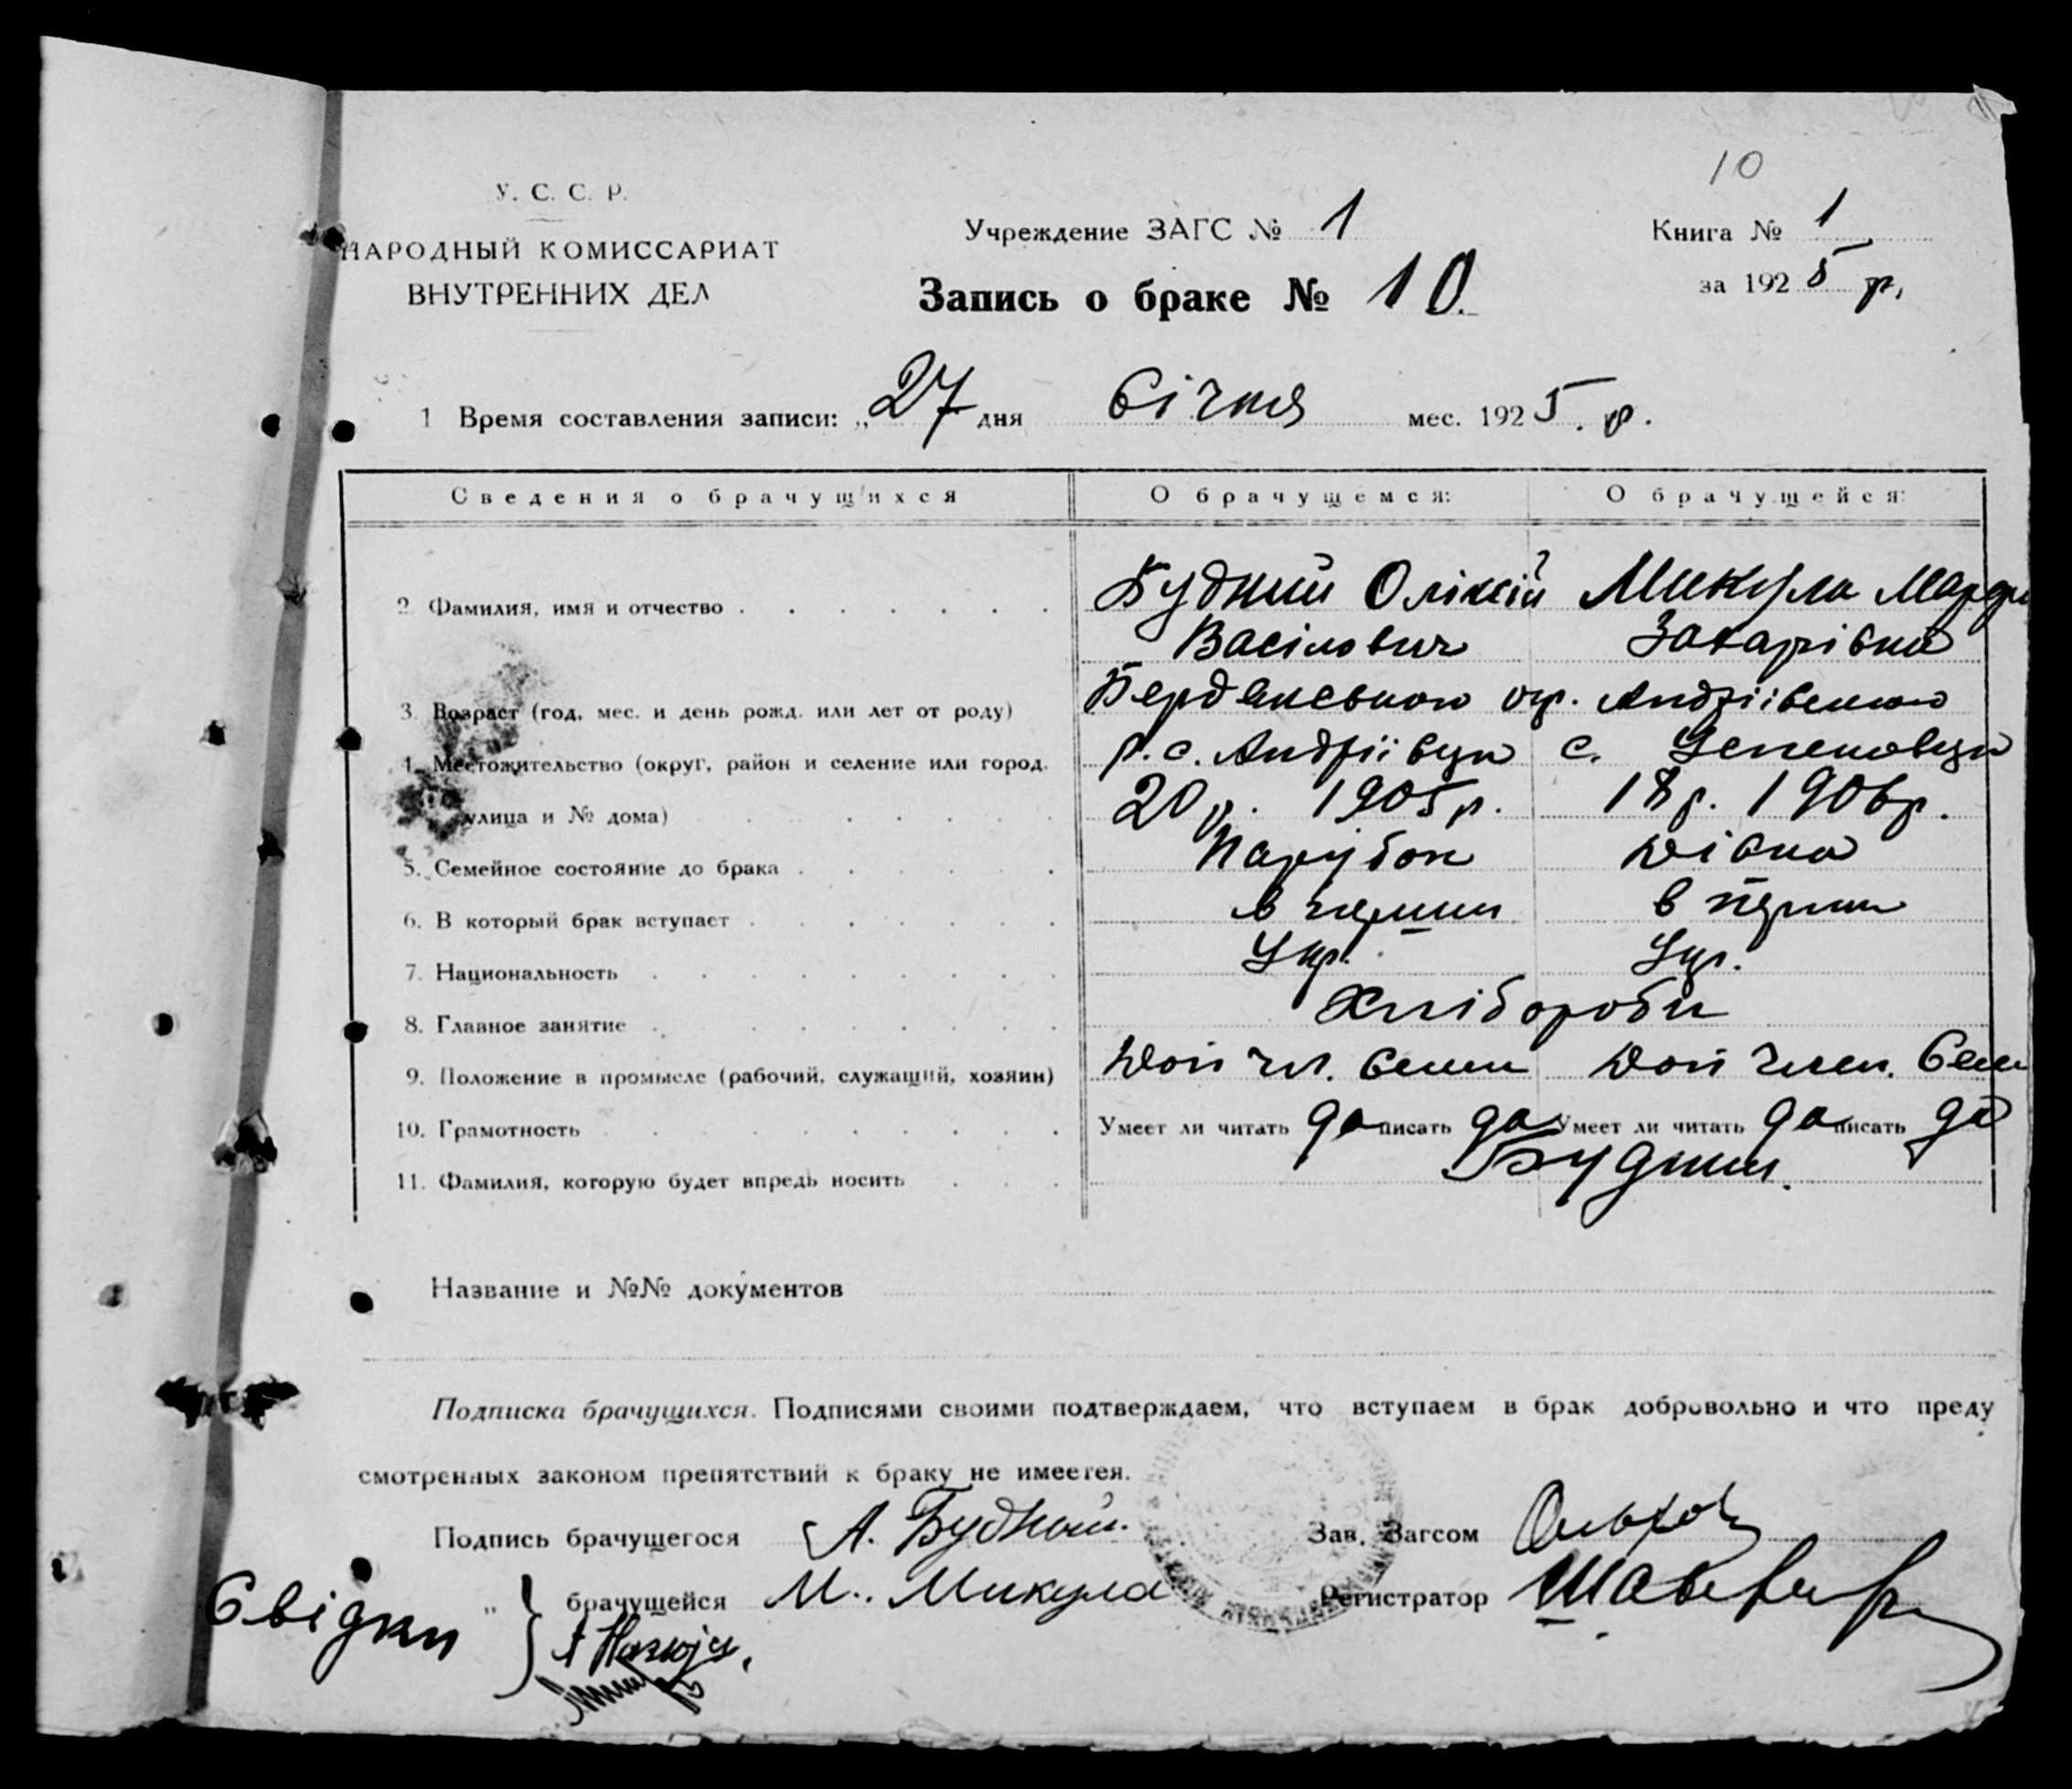 10
У. С. С. Р.
НАРОДНЫЙ КОМИССАРИАТ
ВНУТРЕННИХ ДЕЛ
Учреждение ЗАГС № 1
Книга № 1
за 1925 р.
Запись о браке № 10.
1 Время составления записи: „27 дня Січня мес. 1925. р.
Сведения о брачущихся О брачущемся: О брачущейся:
2. Фамилия, имя и отчество Будний Оліксій Микула Марфи
Васілович Захарівна
3. Возраст (год, мес. и день рожд. или лет от роду) Бердянського окр. Андріївського
4. Местожительство (округ, район и селение или город, р. с. Андріївци с. Успеновци
улица и № дома) 20 р. 1905 р. 18 р. 1906 р.
5. Семейное состояние до брака Парубок Дівка
6. В который брак вступает в перший в перший
7. Национальность Укр. Укр.
8. Главное занятие Хлібороби
9. Положение в промысле (рабочий, служащий, хозяин) Доп чл. семи Доп член. Семи
10. Грамотность Умеет ли читать да писать да Умеет ли читать да писать да
11. Фамилия, которую будет впредь носить Будний.
Название и №№ документов
Подписка брачущихся. Подписями своими подтверждаем, что вступаем в брак добровольно и что преду
смотренных законом препятствий к браку не имеется.
Подпись брачущегося А. Будний. Зав. Загсом
„ брачущейся М. Микула Регистратор
Свідки